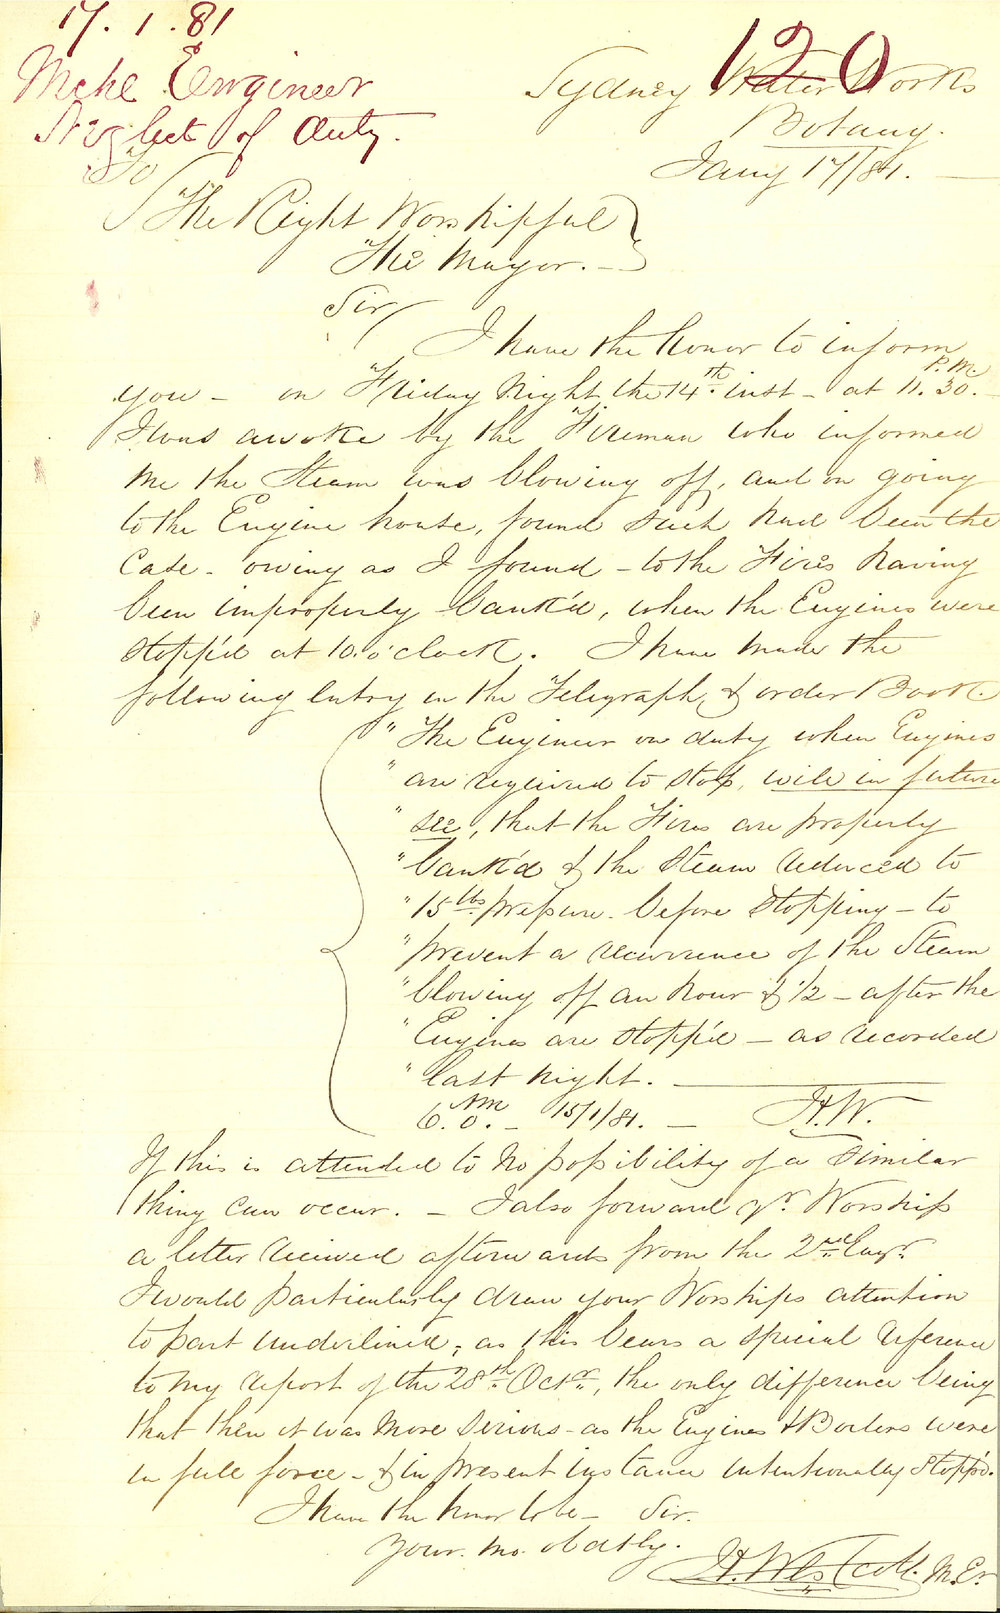 17. 1. 81
120
Mchl Engineer
Neglect of duty.
Sydney Water Works
Botany.
Jany 17/81.
To
The Right Worshipful
The Mayor.
Sir
I have the honor to inform
you - on Friday Night the 14th inst - at 11.30. P.M
I was awoke by the Fireman who informed
me the Steam was blowing off, and on going
to the Engine house, found such had been the
Case - owing as I found - to the Fires having
been improperly bank'd, when the Engines were
stopp'd at 10. o'clock. I have made the
following Entry in the Telegraph & order Book.
"The Engineer on duty when Engines
" are required to stop, will in future
" see, that the Fires are properly
" bank'd & the Steam reduced to
" 15 lbs pressure - before stopping - to
" prevent a recurrence of the Steam
" blowing off an hour & 1/2 - after the
" Engines are stopp'd - as recorded
" last night.
6. 0. AM - 15/1/81. - H.W.
If this is attended to no possibility of a similar
thing can occur. - I also forward yr. Worship
a letter received afterwards from the 2nd Engr.
I would particularly draw your Worships attention
to part underlined, as this bears a special reference
to my report of the 28th Octr, the only difference being
that then it was more serious - as the Engines & Boilers were
in full force - & in present instance intentionally stopp'd.
I have the honor to be - Sir.
Your. mo. obdtly.
H. Westcott. M.Er.